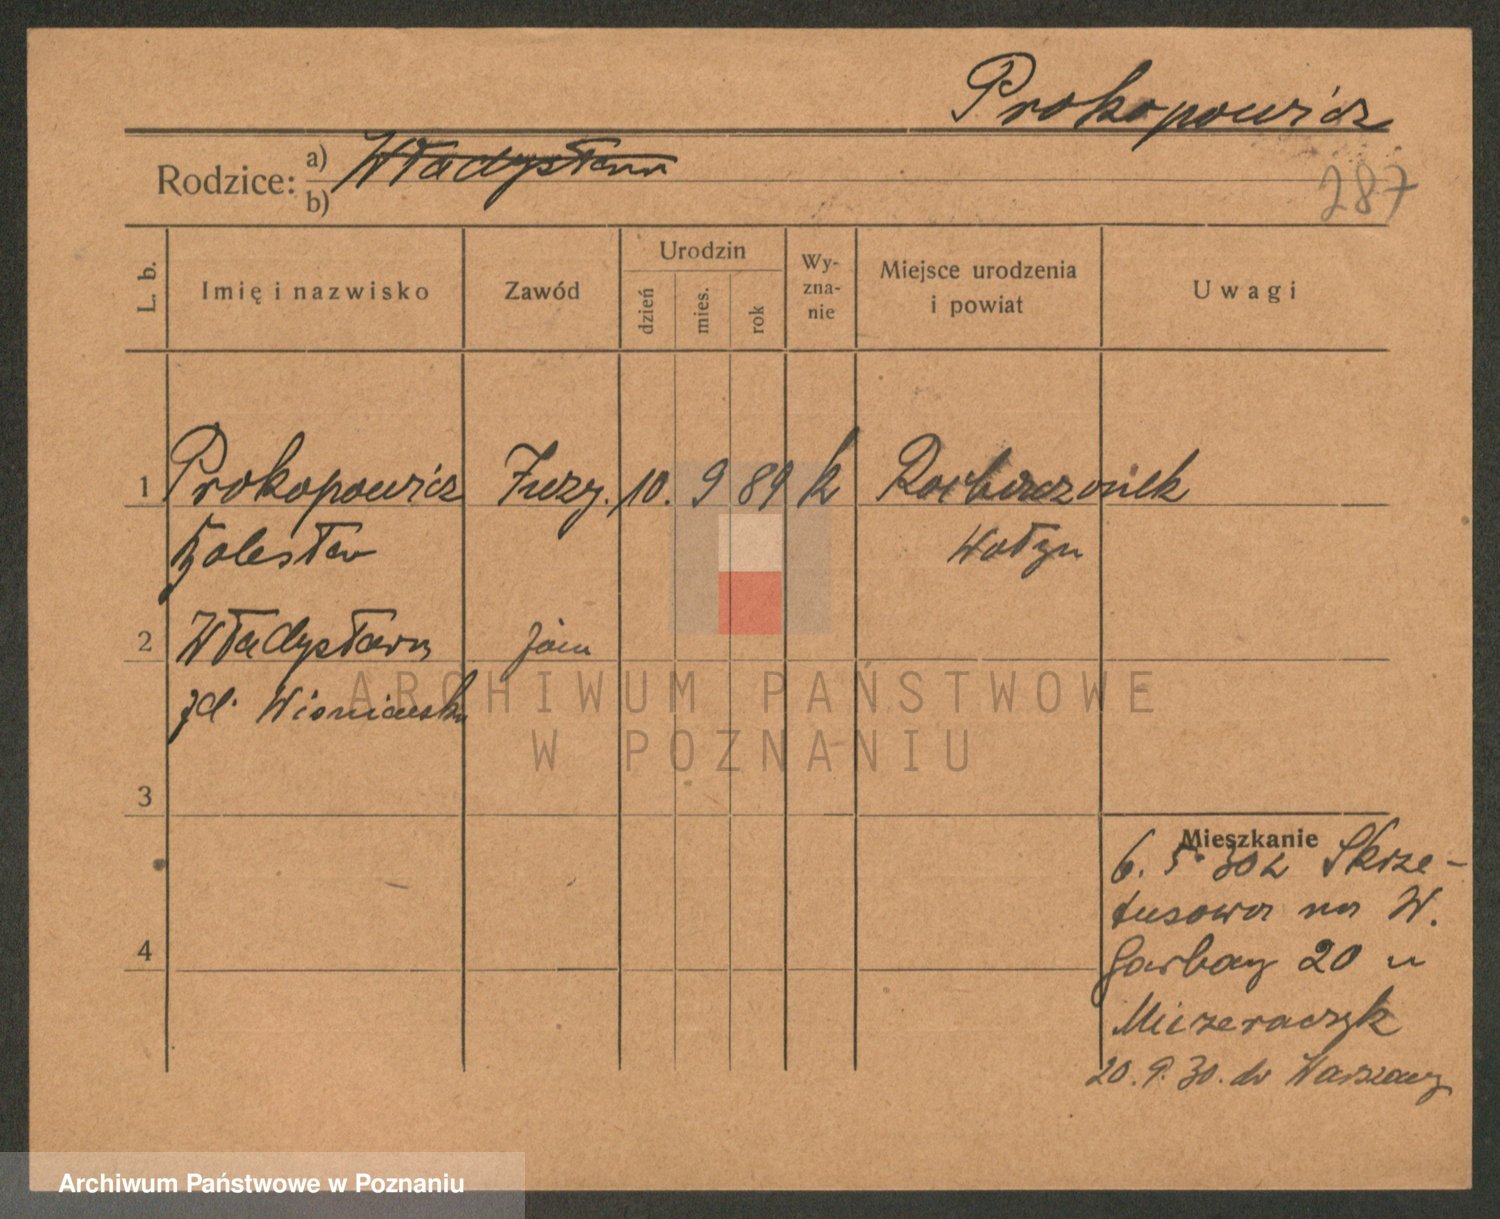 Prokopowicz
Rodzice: a) Władysława
b)
287
L. b.
Imię i nazwisko
Zawód
Urodzin
dzień
mies.
rok
Wy-
zna-
nie
Miejsce urodzenia
i powiat
Uwagi
1 Prokopowicz 10. 9 89 k
Bolesław Wołyń
2 Władysława
zd. Wiśniewska
3
4
Mieszkanie
6. 5. 30 z Skrze-
tusowa na W.
Garbary 20 u
Mizeraczyk
20. 9. 30. do Warszawy
ARCHIWUM PAŃSTWOWE
W POZNANIU
Archiwum Państwowe w Poznaniu